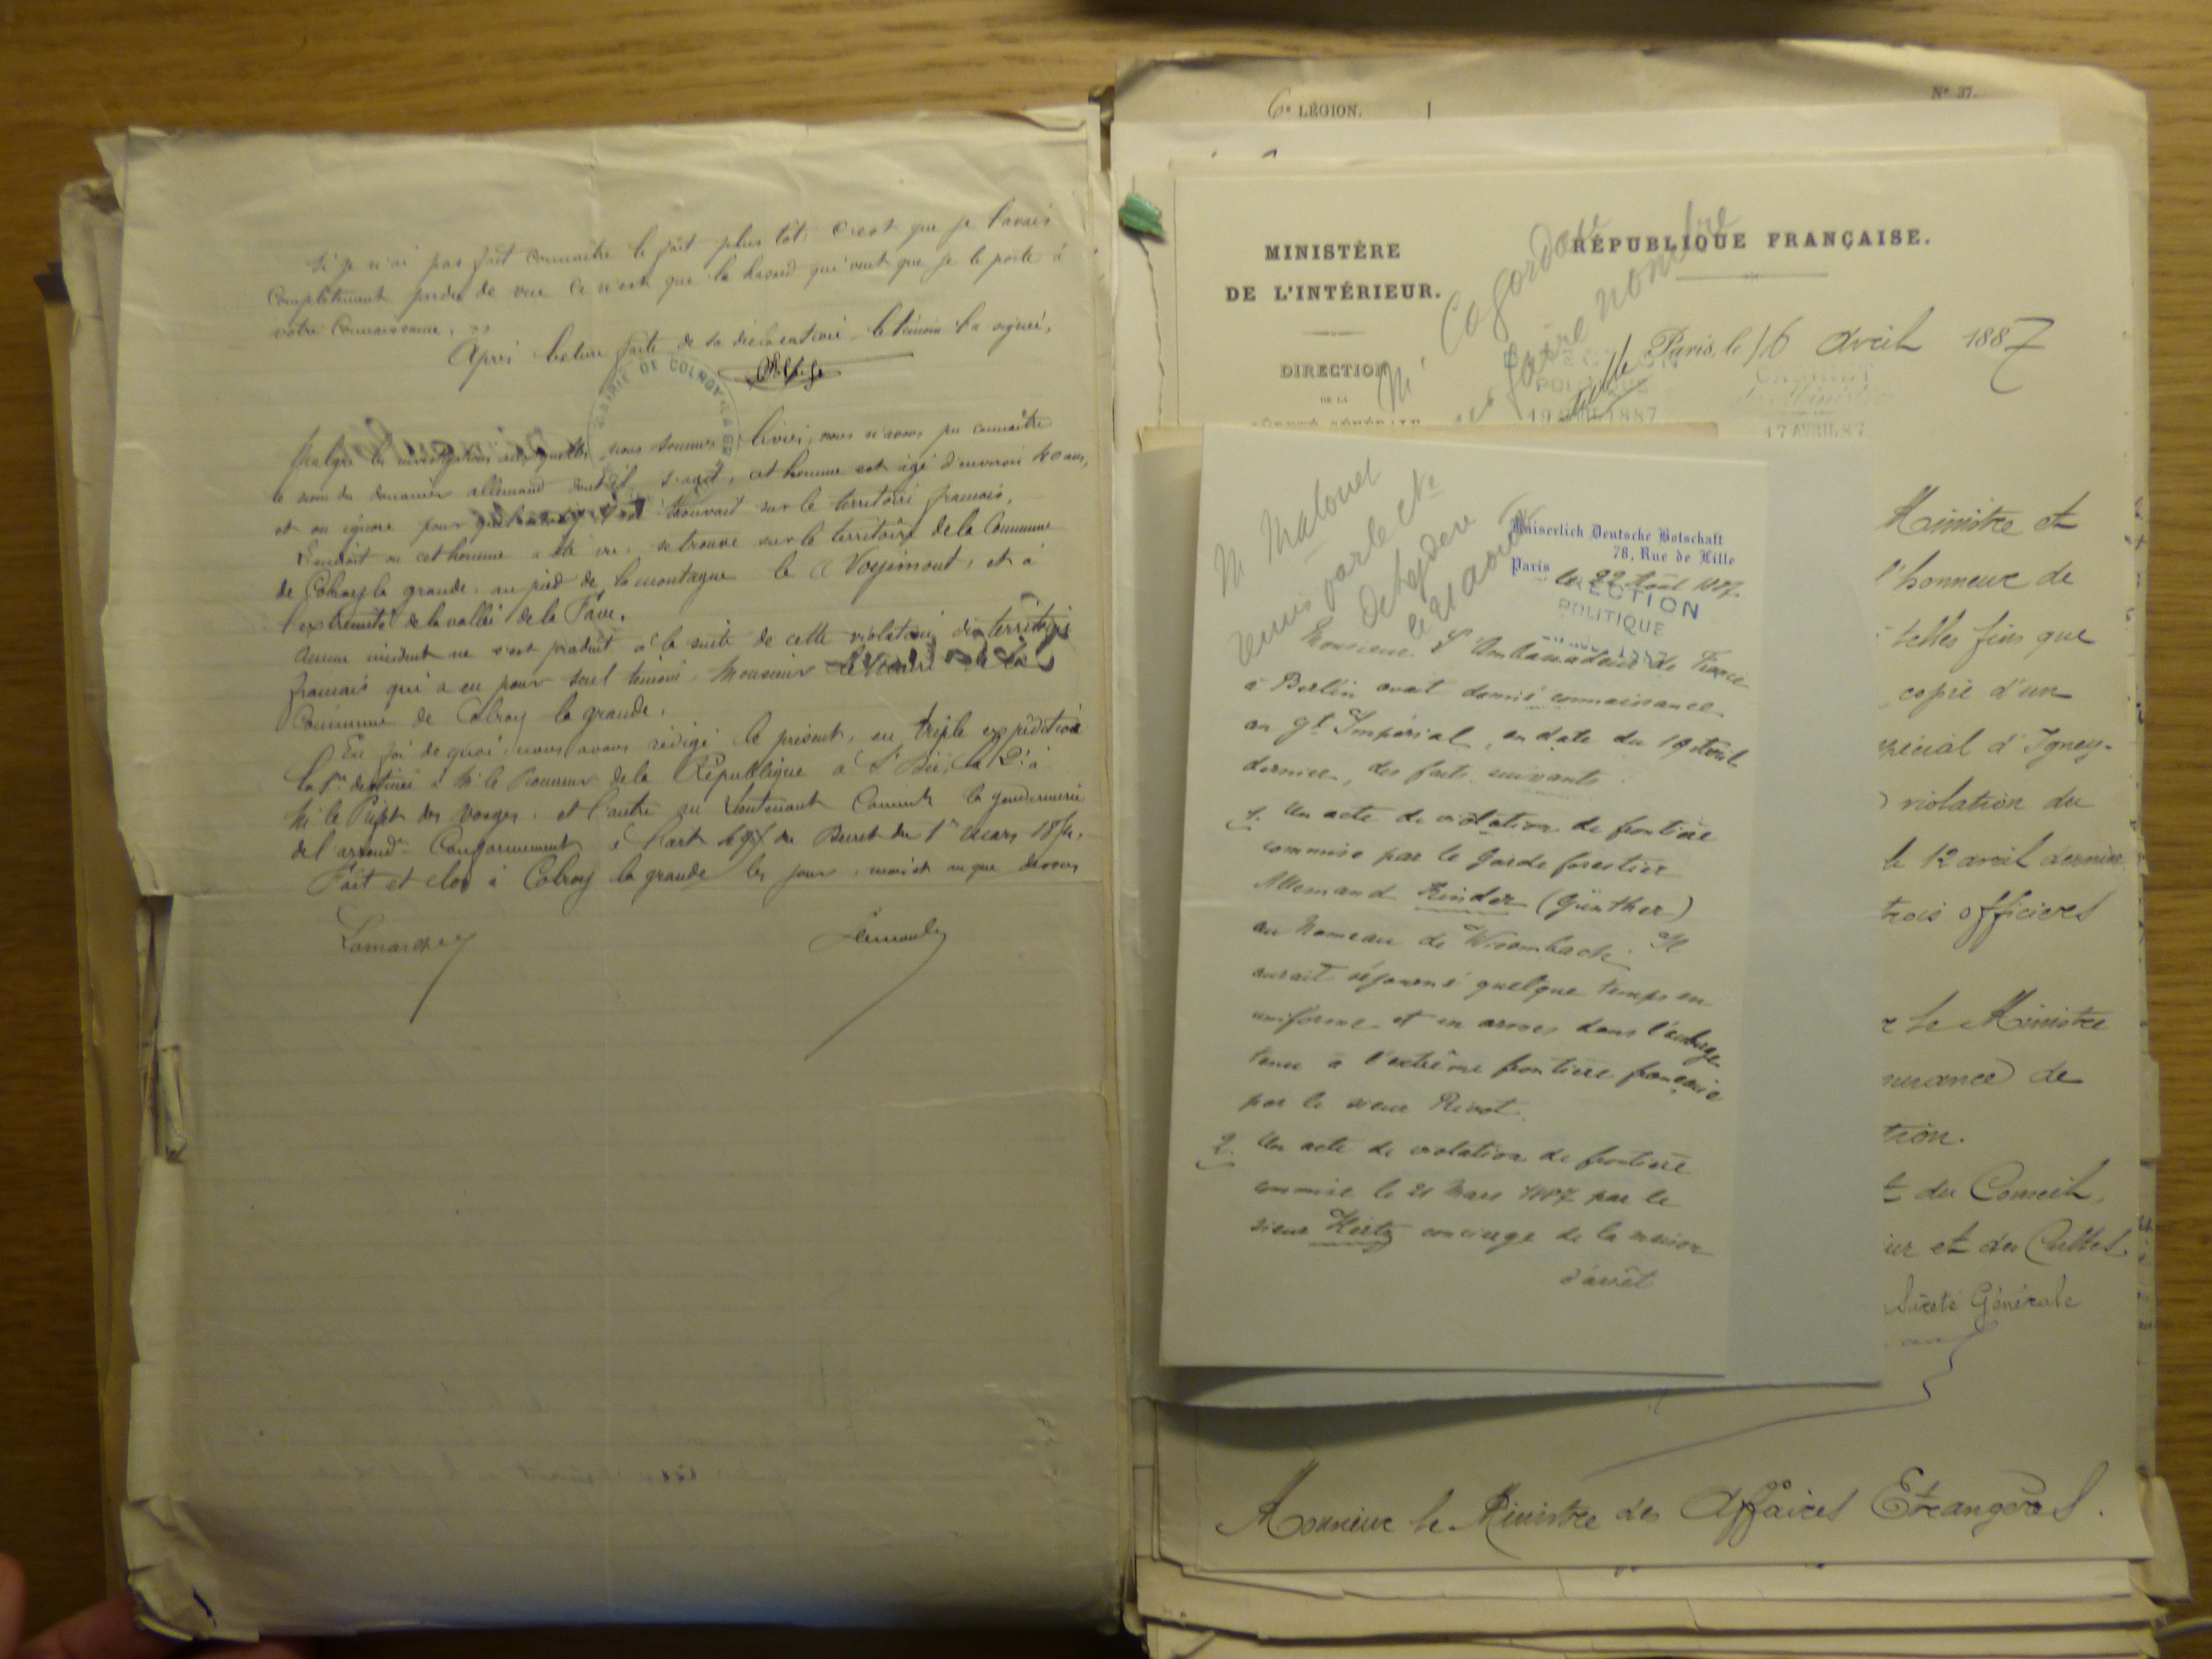 Si je n'ai pas fait connaître le fait plus tôt c'est que je l'avais
complètement perdu de vue ce n'est que le hasard qui veut que je le porte à
votre connaissance.
Après lecture faite de sa déclaration, le témoin l'a signée,
MAIRIE DE COLROY LA GRANDE
Malgré les investigations auxquelles nous sommes livrés, nous n'avons pu connaître
le nom du douanier allemand dont il s'agit, cet homme est âgé d'environ 40 ans,
et on ignore pour se trouvait sur le territoire français.
L'endroit où cet homme a été vu, se trouve sur le territoire de la Commune
de Colroy la grande, au pied de la montagne le Voyémont, et à
l'extrémité de la vallée de la Fave.
Aucun incident ne s'est produit à la suite de cette violation du territoire
français qui a eu pour seul témoin, Monsieur
Commune de Colroy la grande.
En foi de quoi nous avons rédigé le présent, en triple expédition
la 1re destinée à M. le Procureur de la République à St Dié, la 2e à
M. le Préfet des Vosges, et l'autre au Lieutenant Commdt la gendarmerie
de l'arrondt Conformément à l'art du Décret du 1er Mars 1854.
Fait et clos à Colroy la grande les jour, mois et an que dessus
6e LÉGION.
N° 37.
MINISTÈRE
DE L'INTÉRIEUR.
DIRECTION
DE LA
SÛRETÉ GÉNÉRALE
RÉPUBLIQUE FRANÇAISE.
M. Cogordan
Paris, le 16 avril 1887
POLITIQUE
19 AVRIL 1887
CABINET
du Ministre
17 AVRIL 87
Ministre et
l'honneur de
telles fins que
copie d'un
spécial d'Igney-
violation du
le 12 avril dernier
trois officiers
le Ministre
de
tion.
t du Conseil,
ur et des Cultes
Sûreté Générale
Monsieur le Ministre des Affaires Etrangères.
M Malouet
remis par le Cte
le 21 août
Kaiserlich Deutsche Botschaft
78, Rue de Lille
Paris le 22 Août 1887.
DIRECTION
POLITIQUE
Monsieur l'Ambassadeur de France
à Berlin avait donné connaissance
au gt Impérial, en date du 19 Avril
dernier, des faits suivants.
1. Un acte de violation de frontière
commise par le garde forestier
Allemand Kinder (Günther)
au hameau de Wisembach. Il
aurait séjourné quelque temps en
uniforme et en armes dans l'auberge
tenue à l'extrême frontière française
par le sieur Rivot.
2. Un acte de violation de frontière
commise le 21 Mars 1887 par le
sieur Hirtz concierge de la maison
d'arrêt